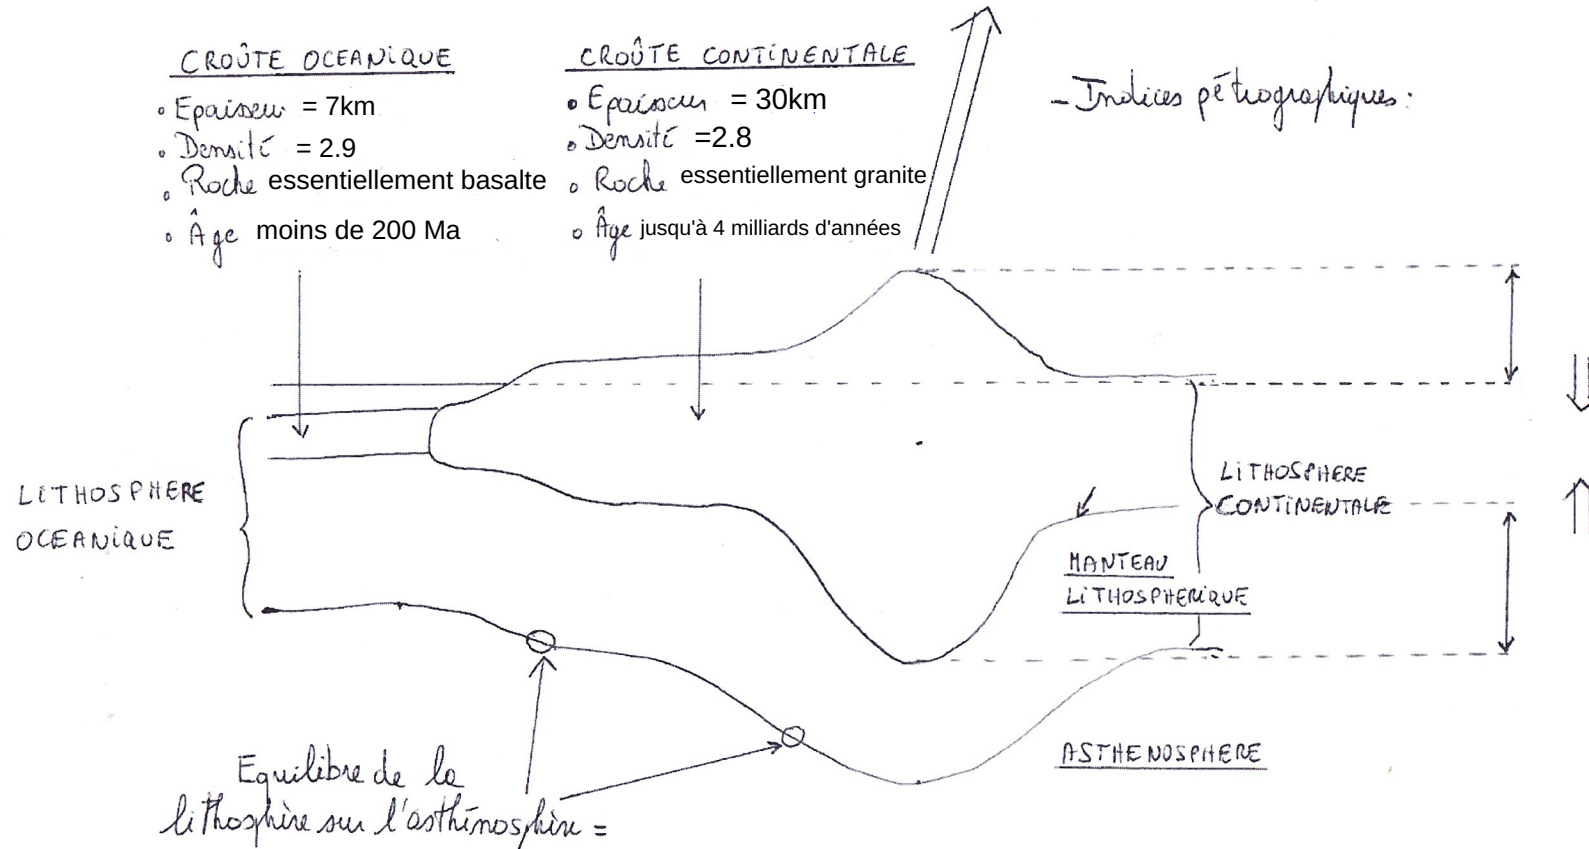 CROÛTE OCEANIQUE
• Epaisseur = 7km
• Densité = 2.9
• Roche essentiellement basalte
• Âge moins de 200 Ma
CROÛTE CONTINENTALE
• Epaisseur = 30km
• Densité =2.8
• Roche essentiellement granite
• Âge jusqu'à 4 milliards d'années
- Indices pétrographiques:
LITHOSPHERE
OCEANIQUE
LITHOSPHERE
CONTINENTALE
MANTEAU
LITHOSPHERIQUE
ASTHENOSPHERE
Equilibre de la
lithosphère sur l'asthénosphère =